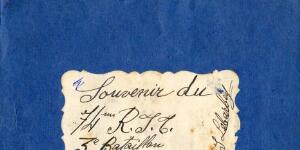 Souvenir du
74ème R.I.T.
3e Bataillon